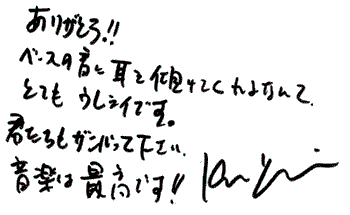 ありがとう!!
ベースの音に耳を傾けてくれるなんて
とてもウレシイです。
君たちもガンバって下さい.
音楽は最高です!!